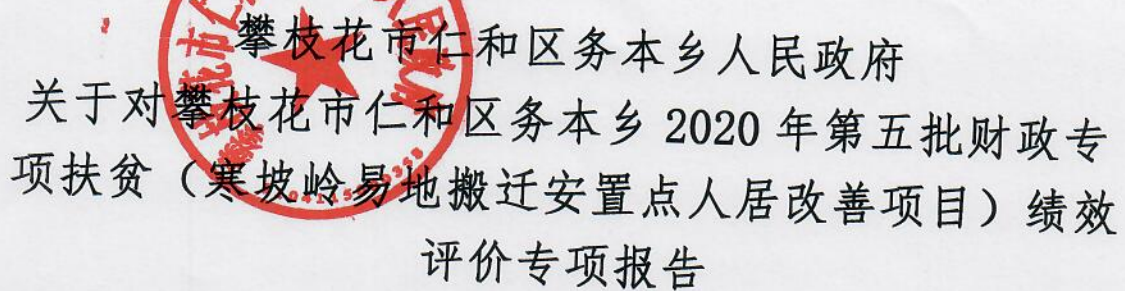 攀枝花市仁和区务本乡人民政府
关于对攀枝花市仁和区务本乡 2020 年第五批财政专
项扶贫（寒坡岭易地搬迁安置点人居改善项目）绩效
评价专项报告